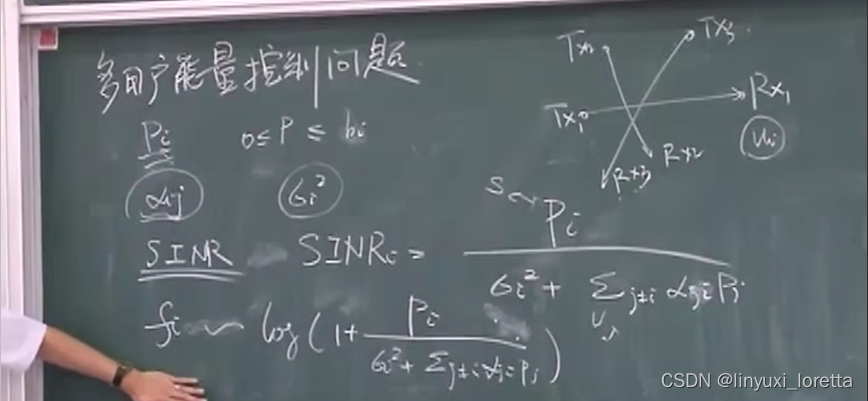 多用户能量控制问题
Pi  0≤P≤bi
αij  σi²
SINR  SINRi = Pi / (σi² + Σj≠i αji Pj)
fi ~ log(1+ Pi / (σi² + Σj≠i αji Pj))
Tx2  Tx3
Tx1  Rx1
Rx3  Rx2
Ui
CSDN @linyuxi_loretta